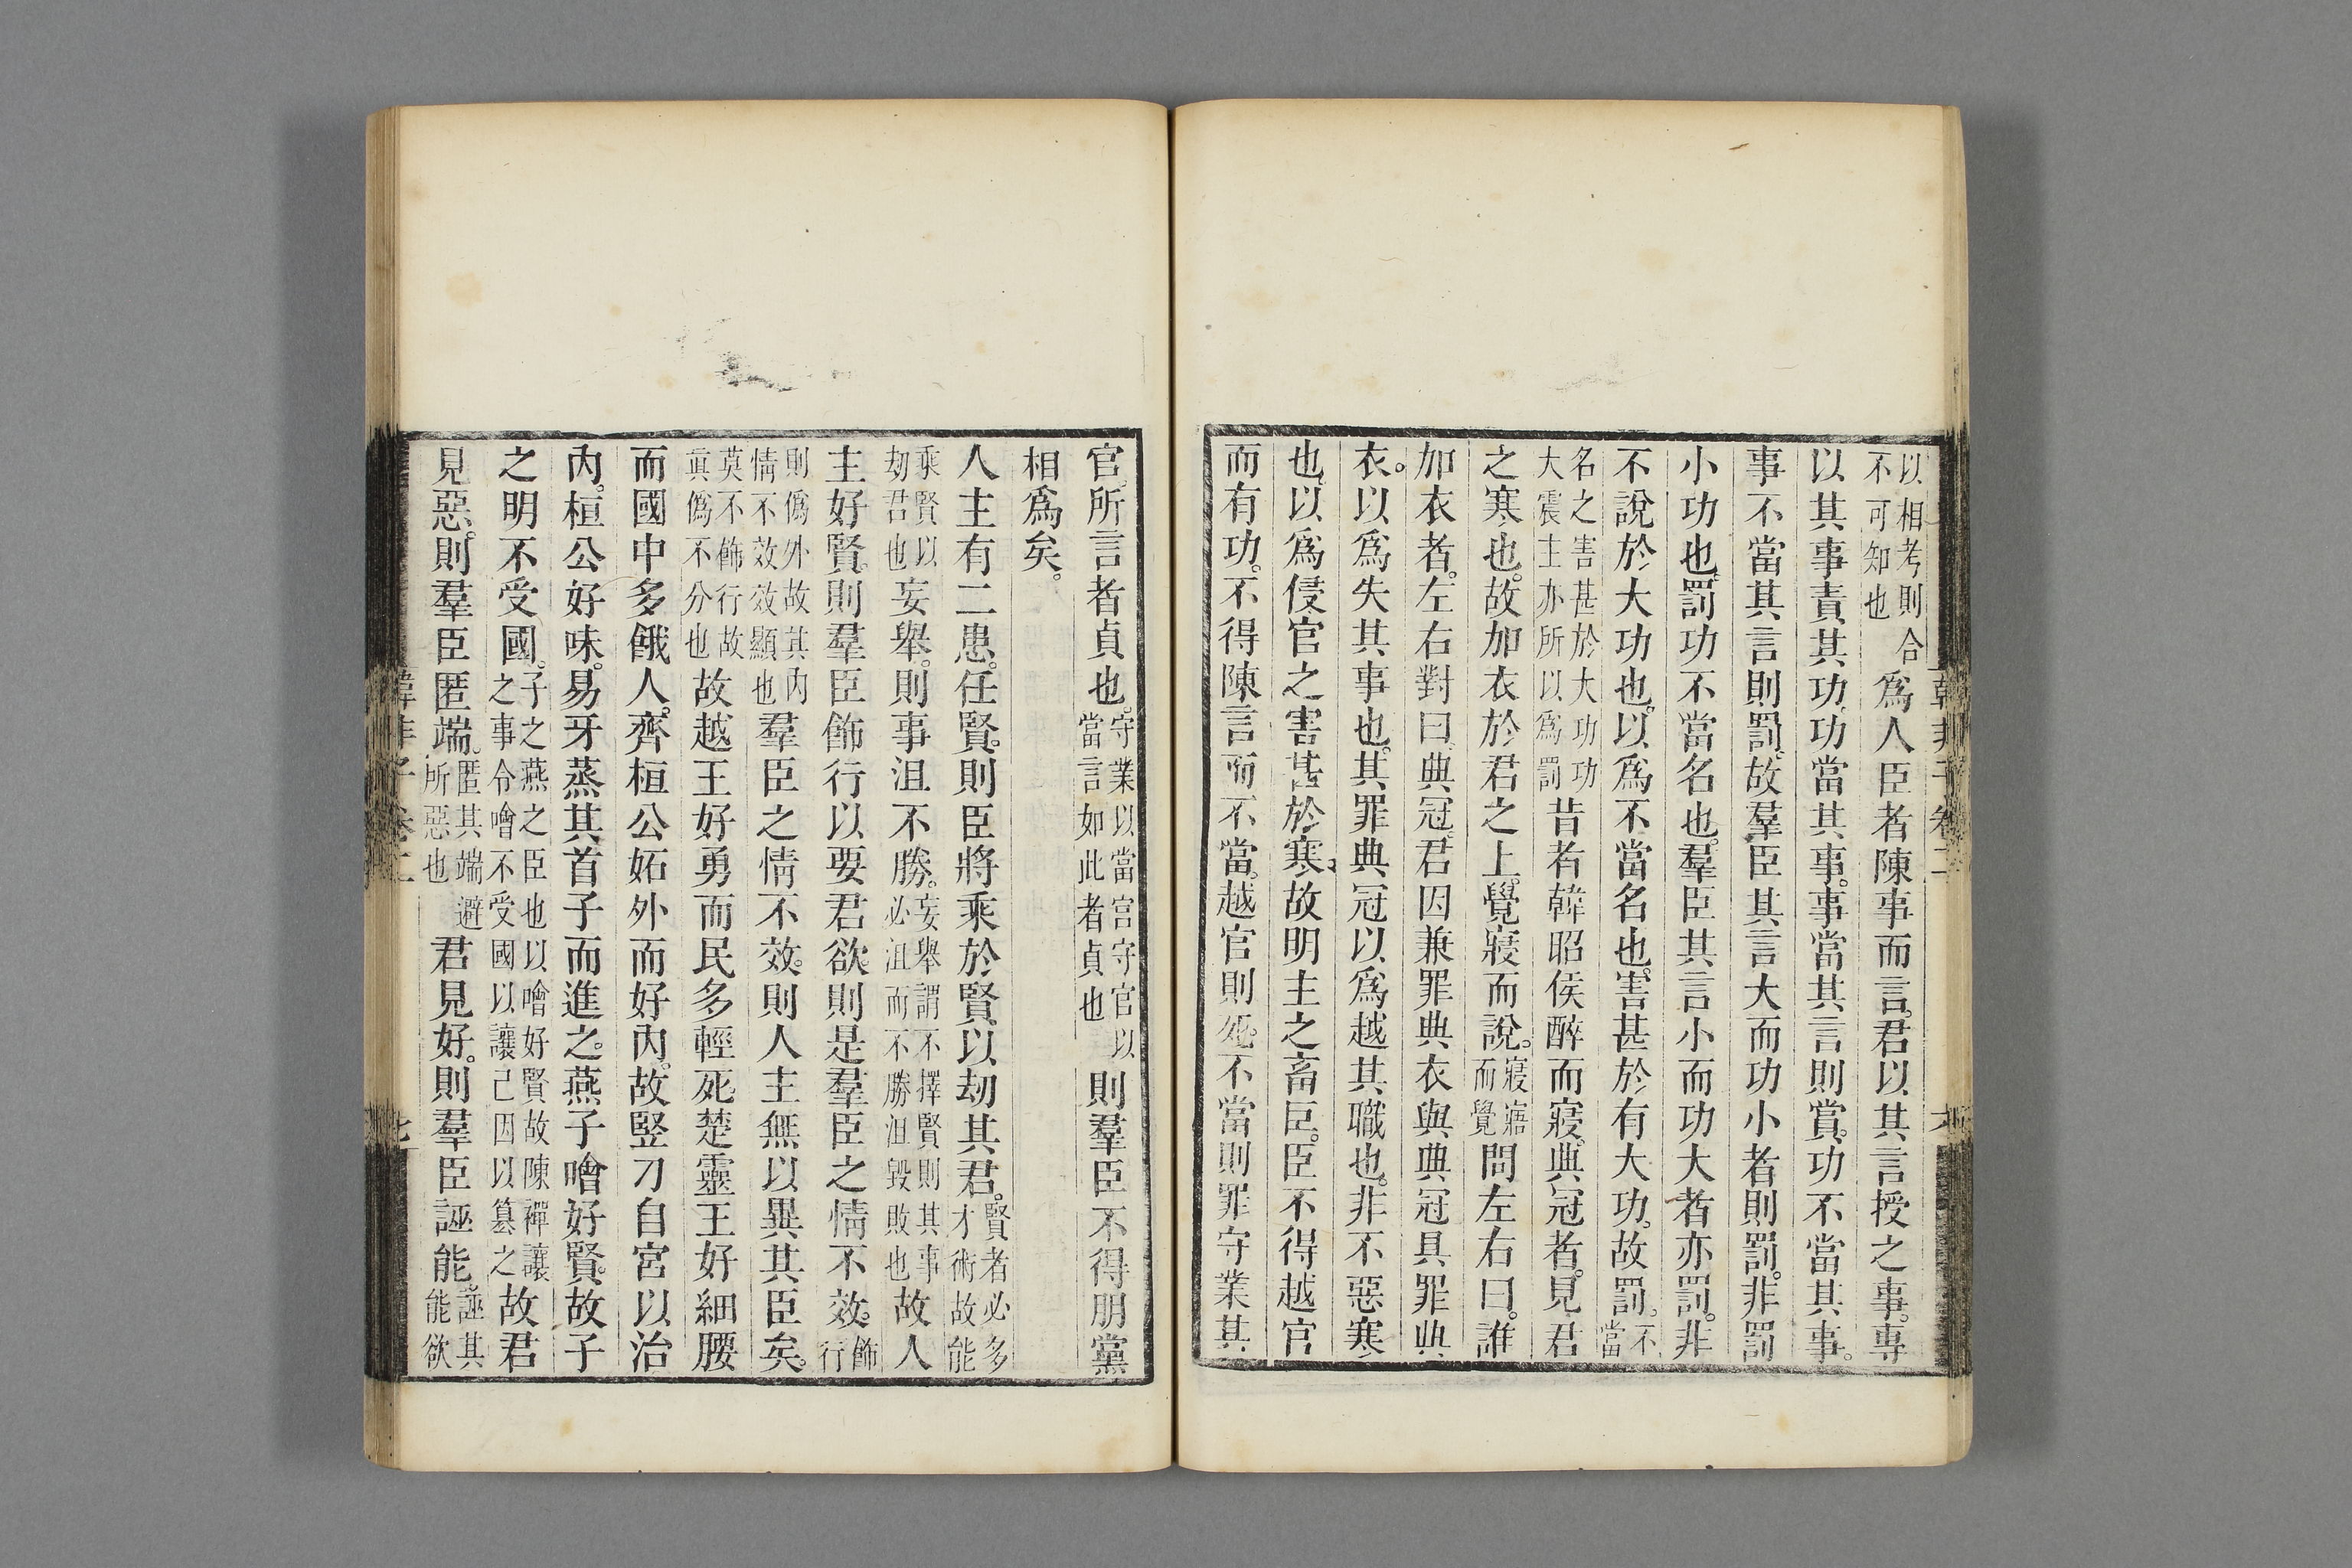 以相考則合不可知也爲人臣者陳事而言。君以其言授之事。專
以其事責其功。功當其事。事當其言則賞。功不當其事。
事不當其言則罰。故羣臣其言大而功小者則罰。非罰
小功也。罰功不當名也。羣臣其言小而功大者亦罰。非
不說於大功也。以爲不當名也。害甚於有大功。故罰。不當
名之害甚於大功功大震主亦所以爲罰昔者韓昭侯醉而寢。典冠者。見君
之寒也。故加衣於君之上。覺寢而說。寢寤而覺問左右曰。誰
加衣者。左右對曰典冠。君因兼罪典衣與典冠具罪典
衣。以爲失其事也。其罪典冠以爲越其職也。非不惡寒
也。以爲侵官之害甚於寒。故明主之畜臣。臣不得越官
而有功。不得陳言而不當。越官則死。不當則罪守業其
韓非子卷二
官。所言者貞也。守業以當官守官以當言如此者貞也則羣臣不得朋黨
相爲矣。
人主有二患。任賢。則臣將乘於賢以劫其君。賢者必多才術故能
乘賢以劫君也妄舉。則事沮不勝。妄舉謂不擇賢則其事必沮而不勝沮毀敗也故人
主好賢。則羣臣飾行以要君欲。則是羣臣之情不效。飾行
則僞外故其內情不效效顯也羣臣之情不效。則人主無以異其臣矣。
莫不飾行故眞僞不分也故越王好勇而民多輕死。楚靈王好細腰
而國中多餓人。齊桓公妬外而好內。故竪刁自宮以治
內。桓公好味。易牙蒸其首子而進之。燕子噲好賢。故子
之明不受國。子之燕之臣也以噲好賢故陳禪讓之事令噲不受國以讓己因以篡之故君
見惡。則羣臣匿端。匿其端避所惡也君見好。則羣臣誣能。誣其能欲
韓非子卷二
七